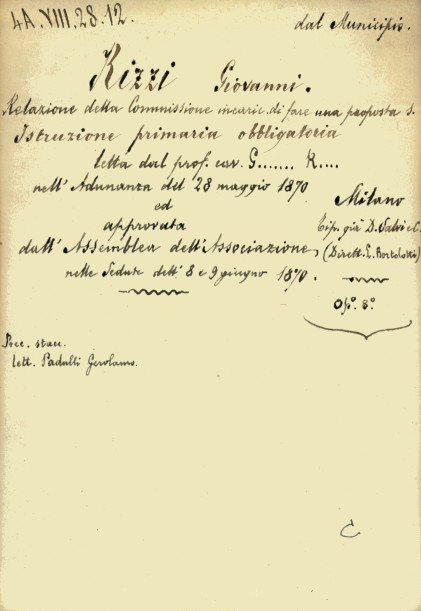 4A.VIII.28.12.
dal Municipio.
Rizzi Giovanni.
Relazione della Commissione incaric. di fare una proposta s.
Istruzione primaria obbligatoria
letta dal prof. cav. G....... R....
nell'Adunanza del 28 maggio 1870
ed
approvata
dall'Assemblea dell'Associazione,
nelle Sedute dell'8 e 9 giugno 1870.
Milano
Tip. già D. Salvi e C.
(Dirett. L. Bortolotti)
Op.° 8.°
Pecc. stacc.
lett. Padulli Gerolamo.
C